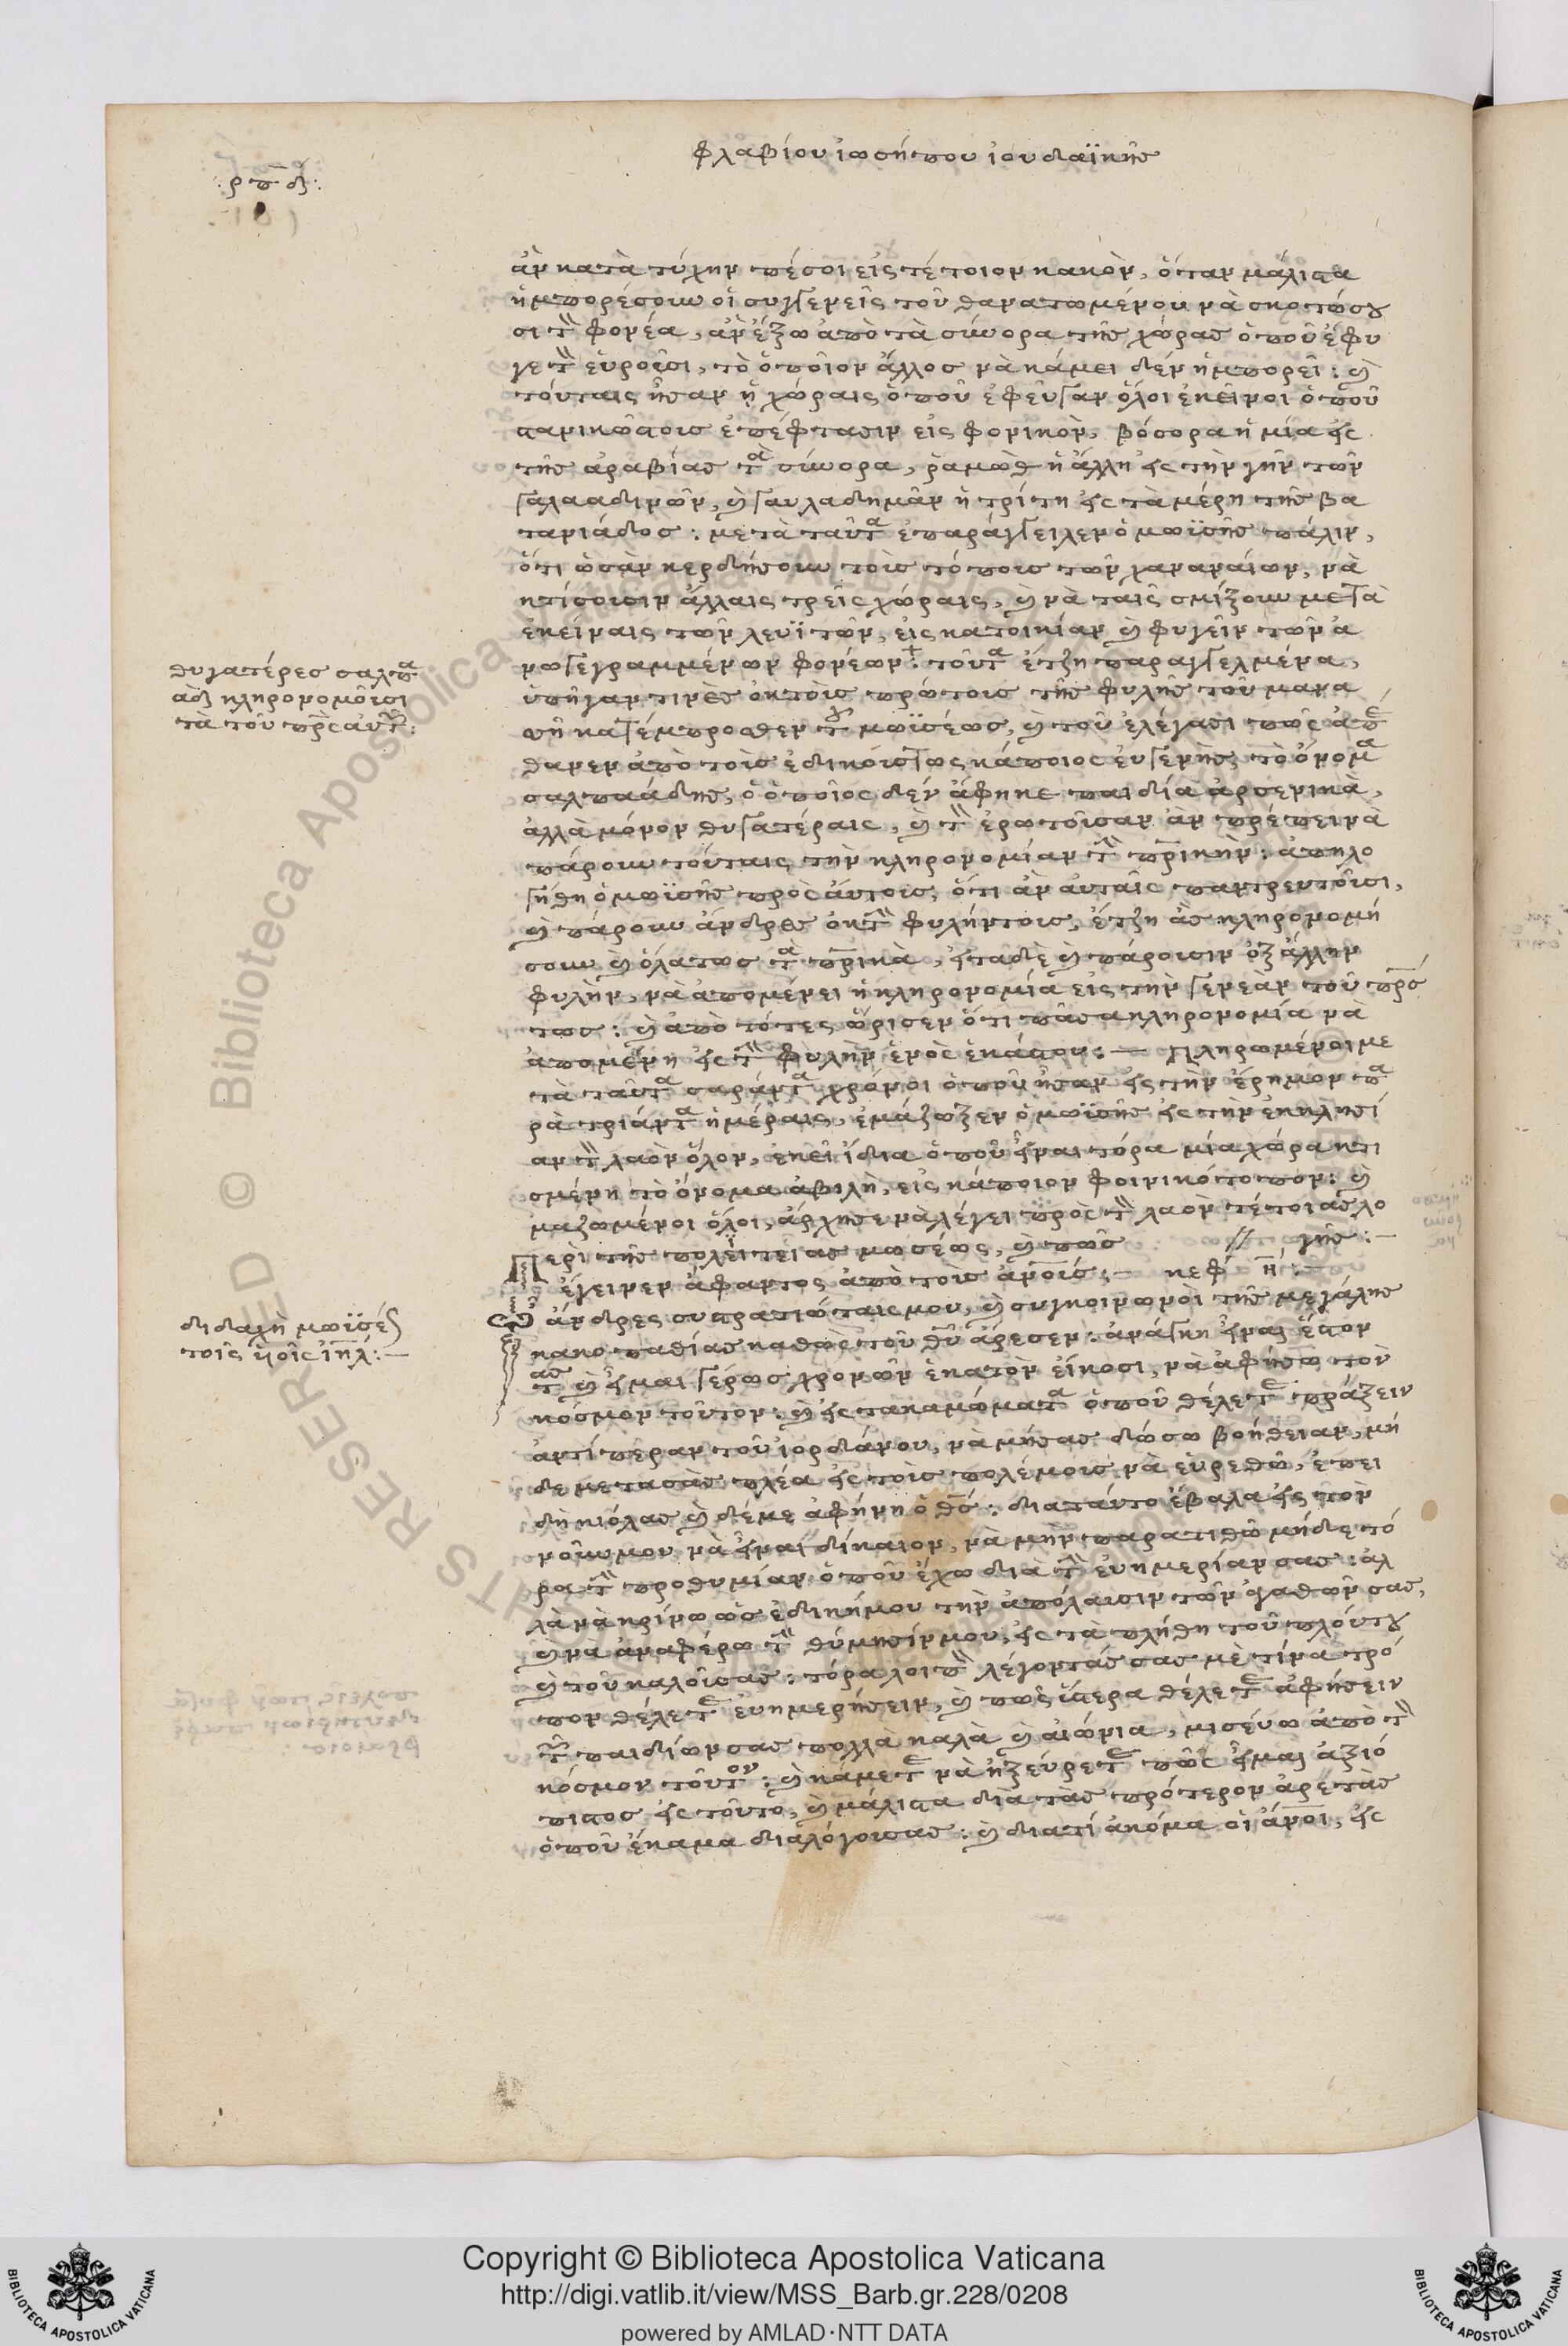 φλαβίου ἰωσήπου ἰουδαϊκῆς
:ρπδ:
ἂν κατὰ τύχην πέσοι εἰς τέτοιον κακὸν, ὅταν μάλιστα
ἠμπορέσουν οἱ συγγενεῖς τοῦ θανατωμένου νὰ σκοτώσου
σι τὸν φονέα, ἂν ἔξω ἀπὸ τὰ σύνορα τῆς χώρας ὁποῦ ἔφυ
γε τὸν εὑροῦσι, τὸ ὁποῖον ἄλλος νὰ κάμει δὲν ἠμπορεῖ: καὶ
τούταις ἦσαν ᾑ χώραις ὁποῦ ἐφεῦγαν ὅλοι ἐκεῖνοι ὁποῦ
στανικῶς τους ἐπέφτασιν εἰς φονικὸν, βόσορα ἡ μία εἰς
τῆς ἀραβίας τὰ σύνορα, ῥαμὼθ ἡ ἄλλη εἰς τὴν γῆν τῶν
γαλααδινῶν, καὶ γαυλαδημᾶν ἡ τρίτη εἰς τὰ μέρη τῆς βα
τανιάδος: μετὰ ταῦτα ἐπαράγγειλεν ὁ μωϊσῆς πάλιν,
ὅτι ὡσὰν κερδήσουν τοὺς τόπους τῶν χαναναίων, νὰ
κτίσουσιν ἄλλαις τρεῖς χώραις, καὶ νὰ ταῖς σμίξουν μεγὰ
ἐκείναις τῶν λευϊτῶν, εἰς κατοικίαν καὶ φυγεῖν τῶν ἀ
νωγεγραμμένων φονέων: τοῦτα ἔτζη παραγγελμένα,
ὑπῆγαν τινὲς ἐκ τοὺς πρώτους τῆς φυλῆς τοῦ μανα
σῆ κατέμπροσθεν τοῦ μωϊσέως, καὶ τοῦ ἐλέγασι πῶς ἀπέ
θανεν ἀπὸ τοὺς ἐδικούς τως κάποιος εὐγενὴς, τὸ ὄνομα
σαλπαάδης, ὁ ὁποῖος δὲν ἄφηκε παιδία ἀρσενικὰ,
ἀλλὰ μόνον θυγατέραις, καὶ τὸν ἐρωτοῦσαν ἂν πρέπει νὰ
πάρουν τούταις τὴν κληρονομίαν τὴν πρικὴν: ἀπηλο
γήθη ὁ μωϊσῆς πρὸς αὐτους, ὅτι ἂν αὐταῖς παντρευτοῦσι,
καὶ πάρουν ἄνδρες ἐκ τὴν φυλήν τους, ἔτζη ἂς κληρονομή
σουν καὶ ὅλα τως τὰ πρικὰ, εἰ τὰ δὲ καὶ πάρουσιν ἐξ ἄλλην
φυλὴν, νὰ ἀπομένει ἡ κληρονομία εἰς τὴν γενεὰν τοῦ πρσ
τως: καὶ ἀπὸ τότες ὥρισεν ὅτι πᾶσα κληρονομία νὰ
ἀπομένη εἰς τὴν φυλὴν ἑνὸς ἑκάστου:— Πληρωμένοι με
τὰ ταῦτα σαράντα χρόνοι ὁποῦ ἦσαν εἰς τὴν ἔρημον πα
ρὰ τριάντα ἡμέραις, ἐμάζωξεν ὁ μωϊσῆς εἰς τὴν ἐκκλησί
αν τὸν λαὸν ὅλον, ἐκεῖ ἴδια ὁποῦ εἶναι τόρα μία χώρα κτι
σμένη τὸ ὄνομα ἀβιλὴ, εἰς κάποιον φοινικότοπον: καὶ
μαζωμένοι ὅλοι, ἄρχησε νὰ λέγει πρὸς τὸν λαὸν τέτοιας λο
// γῆς:—
Περὶ τῆς πολϊτείας μωσέως, καὶ πῶς
ἔγεινεν ἄφαντος ἀπὸ τοὺς ἀνους:— κεφ η:
Ὦ ἄνδρες συστρατιώταις μου, καὶ συγκοινωνοὶ τῆς μεγάλης
κακοπαθίας καθὼς τοῦ θῦ ἄρεσεν: ἀνάγκη εἶναι ἔστον
τας καὶ εἶμαι γέρως χρονῶν ἑκατὸν εἴκοσι, νὰ ἀφήσω τὸν
κόσμον τοῦτον: καὶ εἰς τὰ καμώματα ὁποῦ θέλετε πράξειν
ἀντίπεραν τοῦ ἰορδάνου, νὰ μὴ σας δώσω βοήθειαν, μή
δε μετασᾶς πλέα εἰς τοὺς πολέμους νὰ εὑρεθῶ, ἐπει
δὴ κιόλας καὶ δέμε ἀφήνη ὁ θσ: διαταύτο ἔβαλα εἰς τὸν
νοῦν μου νὰ εἶναι δίκαιον, νὰ μὴν παρατιθῶ μήδε τό
ρα τὴν προθυμίαν ὁποῦ ἔχω διὰ τὴν εὐημερίαν σας: ἀλ
λὰ νὰ κρίνω ὡς ἐδική μου τὴν ἀπόλαυσιν τῶν ἀγαθῶν σας,
καὶ νὰ ἀναφέρω τὴν θύμησίν μου, εἰς τὰ πλήθη τοῦ πλούτου
καὶ τοῦ καλοῦ σας: τόρα λοιπὸν λέγοντάς σας μὲ τίνα τρό
πον θέλετε εὐημερήσειν, καὶ πῶς ὕστερα θέλετε ἀφήσειν
τῶν παιδίων σας πολλὰ καλὰ καὶ αἰώνια, μισεύω ἀπὸ τὸν
κόσμον τοῦτον: καὶ κάμετε νὰ ἠξεύρετε πῶς εἶμαι ἀξιό
πιστος εἰς τοῦτο, καὶ μάλιστα διὰ τὰς πρότερον ἀρετὰς
ὁποῦ ἔκαμα διαλόγου σας: καὶ διατί ἀκόμα οἱ ἄνοι, εἰς
θυγατέρες σαλπα
ἀδ κληρονομοῦσι
τὰ τοῦ πρς αὐτῶν:
διδαχὴ μωϊσέως
τοῖς ὑοῖς ἰηλ:—
Copyright © Biblioteca Apostolica Vaticana
http://digi.vatlib.it/view/MSS_Barb.gr.228/0208
powered by AMLAD·NTT DATA
BIBLIOTECA APOSTOLICA VATICANA
BIBLIOTECA APOSTOLICA VATICANA